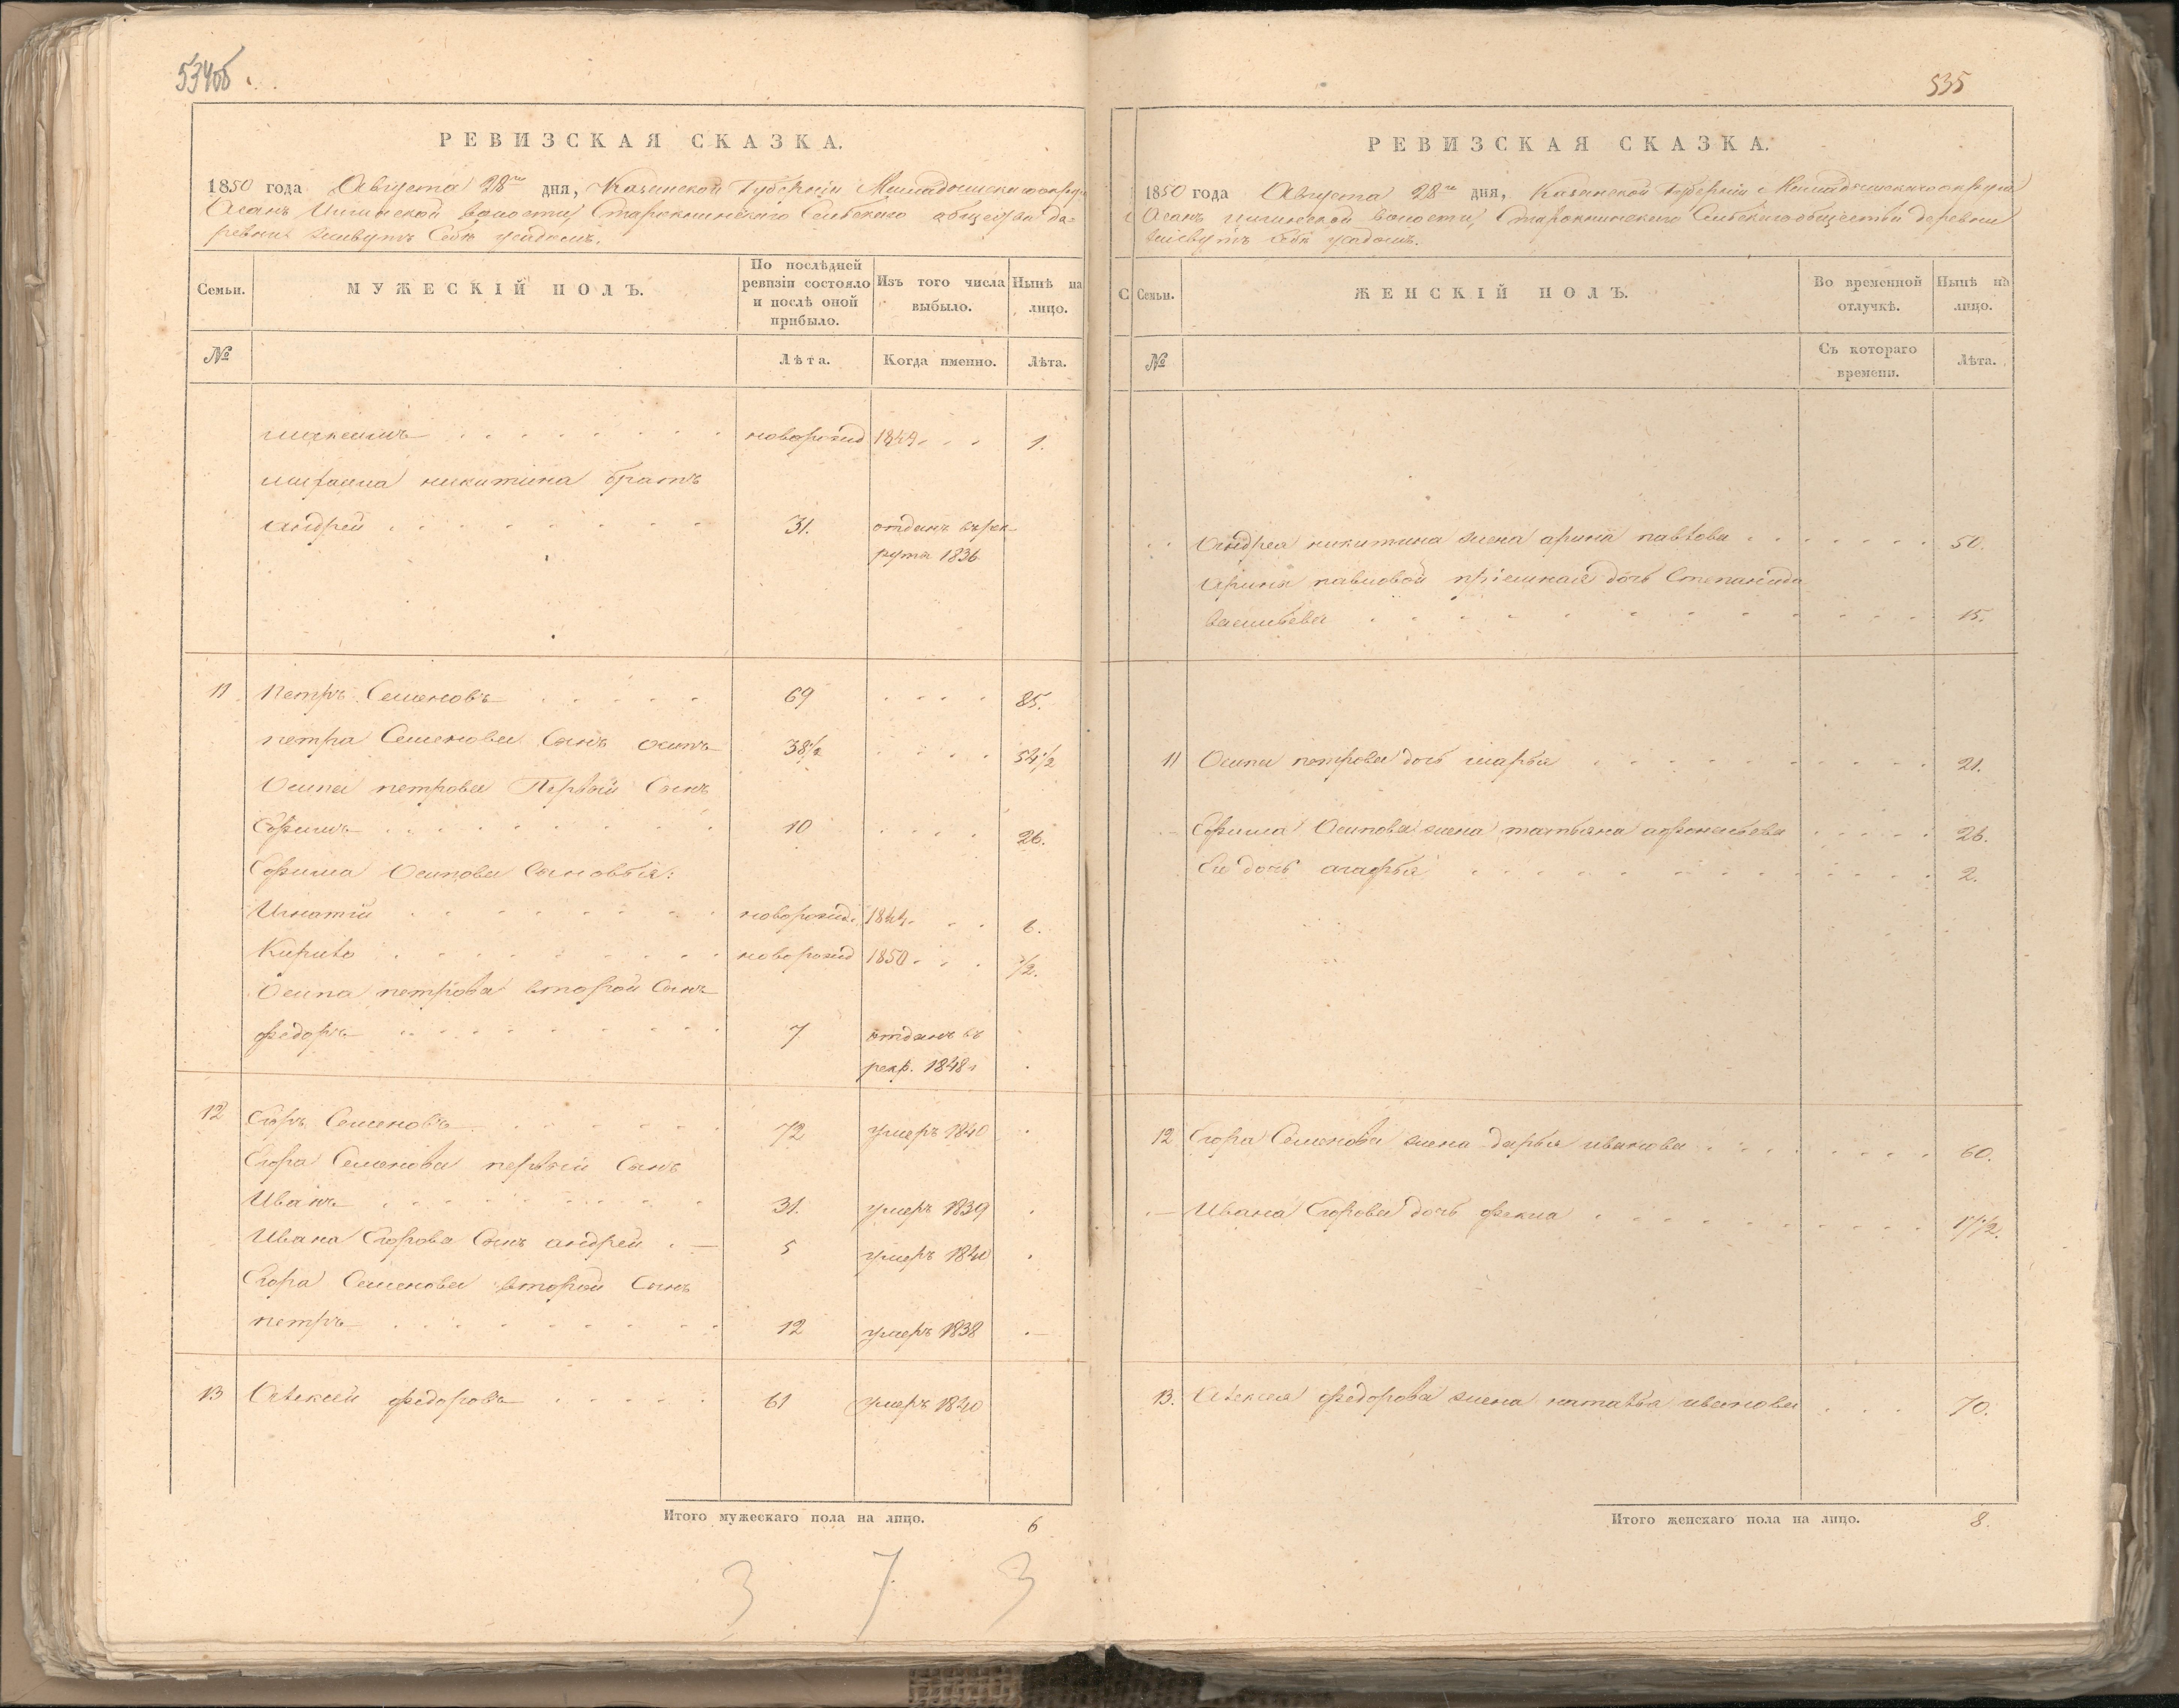 534об
РЕВИЗСКАЯ СКАЗКА.
1850 года Августа 28го дня, Казанской Губерніи
волости Старокнинскаго Сельскаго общества де-
ревни живутъ
Семьи.
МУЖЕСКІЙ ПОЛЪ.
По послѣдней ревизіи состояло и послѣ оной прибыло.
Изъ того числа выбыло.
Нынѣ на лицо.
№
Лѣта.
Когда именно.
Лѣта.
максимъ новорожд 1849 1.
никитина братъ
андрей 31. отданъ въ рек-
рута 1836
11 Петръ Семеновъ 69 85.
петра Семенова Сынъ осипъ 38½ 54½
Осипа петрова Первый Сынъ
Ефимъ 10 26.
Ефима Осипова Сыновья:
Игнатій новорожд. 1844. 6.
Кирило новорожд 1850 ½.
Осипа петрова второй Сынъ
федоръ 7 отданъ въ
рекр. 1848
12 Егоръ Семеновъ 72 умеръ 1840
Егора Семенова первый Сынъ
Иванъ 31. умеръ 1839
Ивана Егорова Сынъ андрей 5 умеръ 1840
Егора Семенова второй Сынъ
петръ 12 умеръ 1838
13 Алексей федоровъ 61 умеръ 1840
Итого мужескаго пола на лицо. 6
3 7 3
535
РЕВИЗСКАЯ СКАЗКА.
1850 года Августа 28го дня, Казанской Губерніи
волости, Старокнинскаго Сельскаго общества деревни
С
Семьи.
ЖЕНСКІЙ ПОЛЪ.
Во временной отлучкѣ.
Нынѣ на лицо.
№
Съ котораго времени.
Лѣта.
Андрея никитина жена арина павлова 50.
Арины павловой пріемная дочь Степанида
васильева 15.
11 Осипа петрова дочь марья 21.
Ефима Осипова жена татьяна афонасьева 26.
Ея дочь агафья 2.
12 Егора Семенова жена дарья иванова 60.
Ивана Егорова дочь фекла 17½.
13. Алексея федорова жена наталья иванова 70.
Итого женскаго пола на лицо. 8.